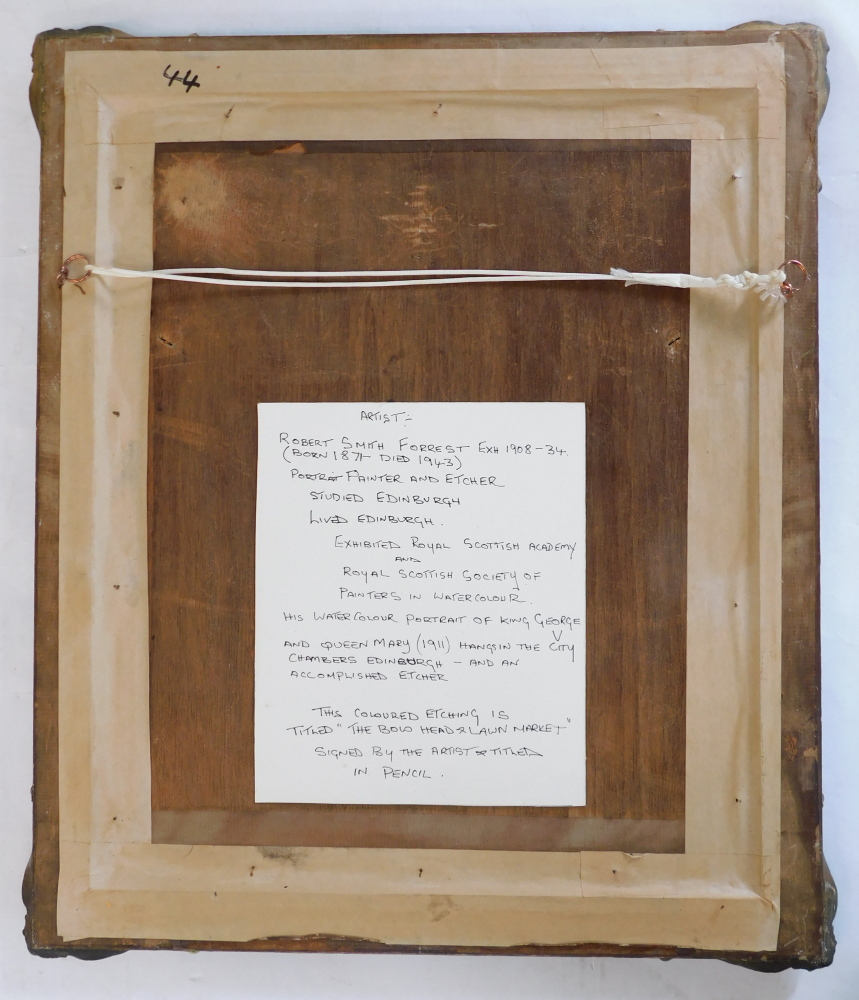 44
ARTIST:-
ROBERT SMITH FORREST EXH 1908-34.
(BORN 1871- DIED 1943)
PORTRAIT PAINTER AND ETCHER
STUDIED EDINBURGH
LIVED EDINBURGH.
EXHIBITED ROYAL SCOTTISH ACADEMY
AND
ROYAL SCOTTISH SOCIETY OF
PAINTERS IN WATERCOLOUR.
HIS WATERCOLOUR PORTRAIT OF KING GEORGE
V
AND QUEEN MARY (1911) HANGS IN THE CITY
CHAMBERS EDINBURGH - AND AN
ACCOMPLISHED ETCHER
THIS COLOURED ETCHING IS
TITLED "THE BOW HEAD & LAWN MARKET"
SIGNED BY THE ARTIST & TITLED
IN PENCIL.